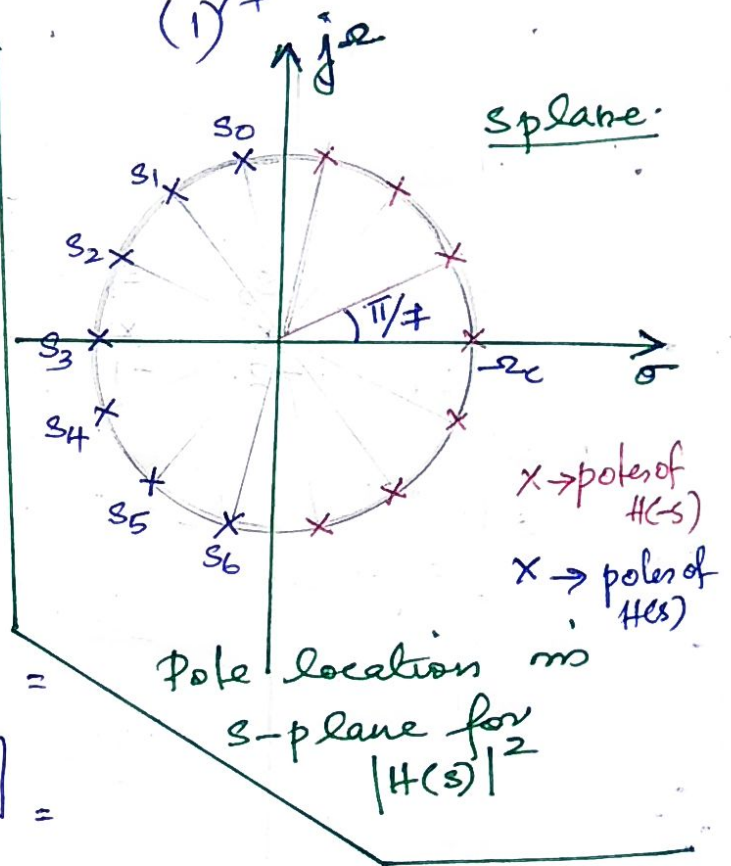 (1)
jΩ
s plane.
S0
S1
S2
π/7
S3
Ωc
σ
S4
S5
S6
x → poles of
H(-s)
x → poles of
H(s)
=
Pole location in
s-plane for
|H(s)|²
=